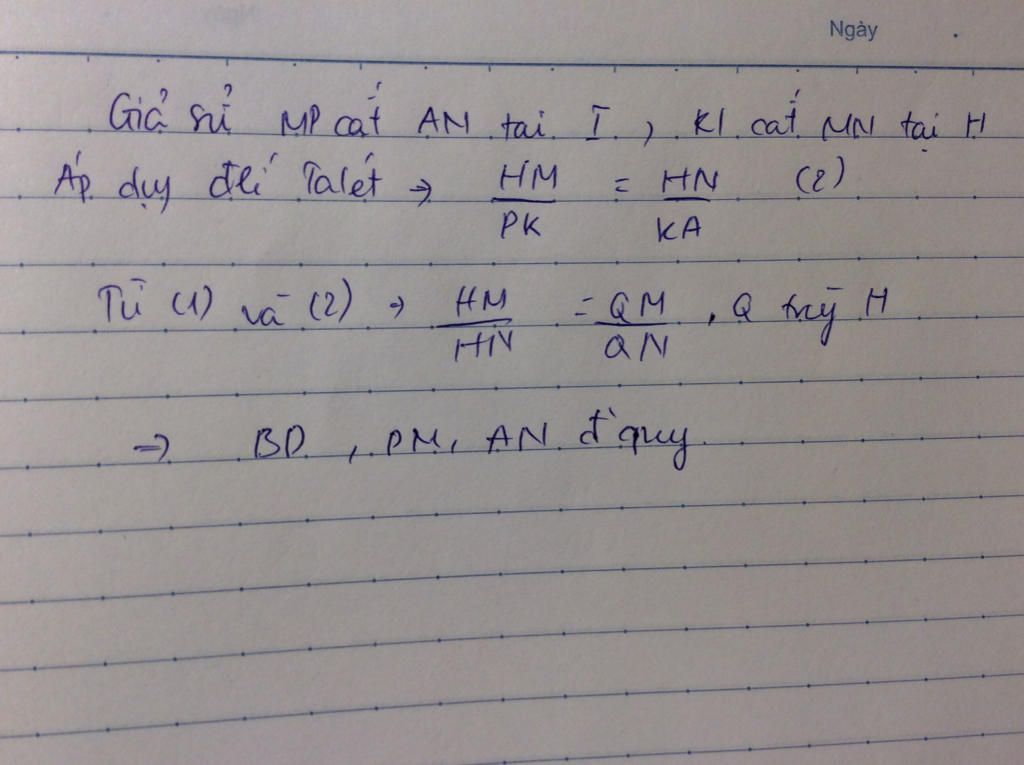 Ngày
Giả sử MP cắt AN tại I, KI cắt MN tại H
Áp dụg đlí Talét → HM/PK = HN/KA (2)
Từ (1) và (2) → HM/HN = QM/QN, Q trùg H
⇒ BD, PM, AN đ'quy